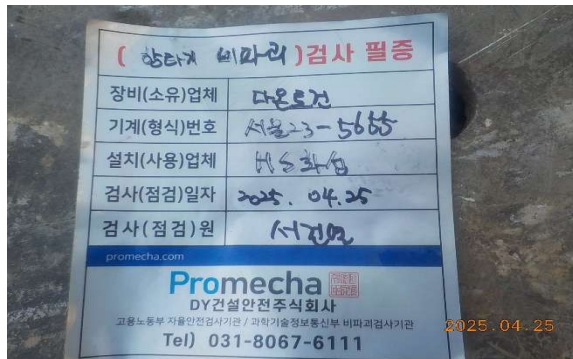 ( 항타기 비파괴 )검사 필증
장비(소유)업체 다온토건
기계(형식)번호 서울23-5655
설치(사용)업체 HS화성
검사(점검)일자 2025. 04. 25
검사(점검)원
promecha.com
Promecha
DY건설안전주식회사
고용노동부 자율안전검사기관 / 과학기술정보통신부 비파괴검사기관
Tel) 031-8067-6111
2025.04.25